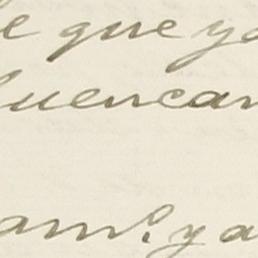 e que ya
luencan
am.º y a